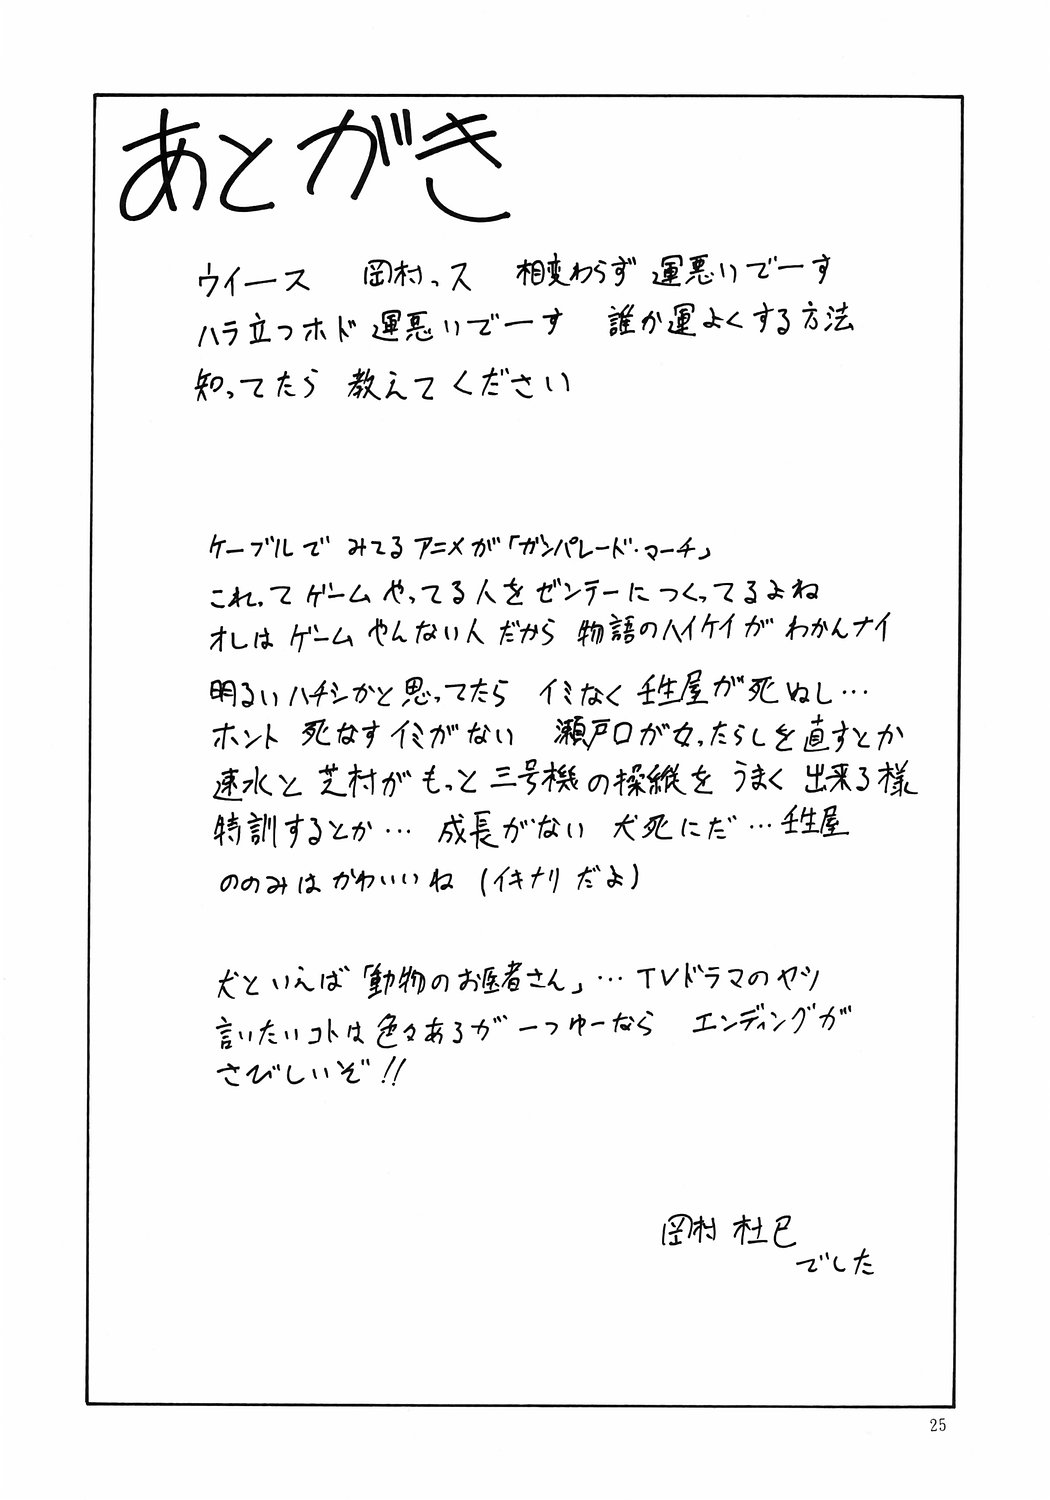 あとがき
ウイース 岡村っス 相変わらず 運悪いでーす
ハラ立つホド 運悪いでーす 誰か運よくする方法
知ってたら 教えてください
ケーブルで みてるアニメが「ガンパレード・マーチ」
これって ゲームやってる人をゼンテーにつくってるよね
オレは ゲームやんない人だから 物語のハイケイが わかんナイ
明るいハナシかと思ってたら イミなく 壬生屋が死ぬし…
ホント 死なすイミがない 瀬戸口が女ったらしを直すとか
速水と 芝村がもっと三号機の操縦を うまく 出来る様
特訓するとか… 成長がない 犬死にだ…壬生屋
ののみは かわいいね (イキナリ だよ)
犬といえば「動物のお医者さん」…TVドラマのヤツ
言いたいコトは色々あるが 一つゆーなら エンディングが
さびしいぞ!!
岡村 杜巳
でした
25